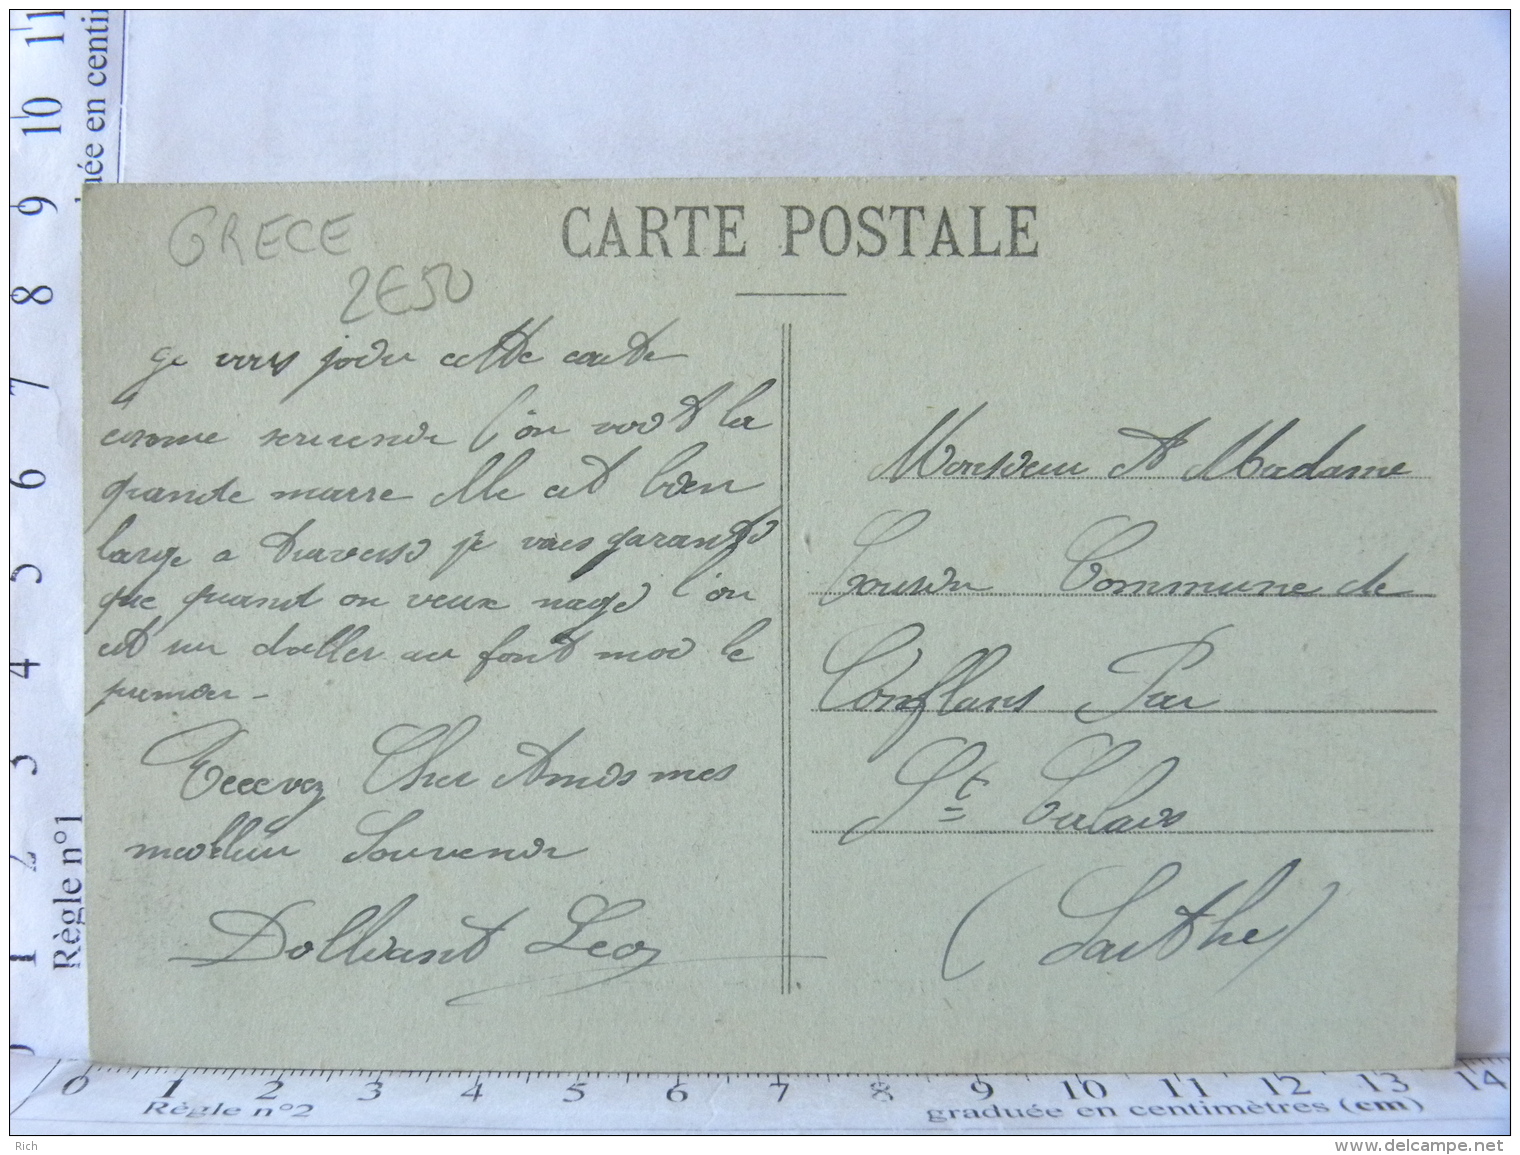 11
10
9
8
7
6
5
4
3
2
1
Règle n°1
née en centi
GRECE
2E50
CARTE POSTALE
ge vous join cette carte
comme souvenir l'on voit la
grande marre Elle est bien
large a traversé je vous garantis
que quand on veux nagé l'on
est un daller au font moi le
premier -
Recevez Cher Amis mes
meilleur Souvenir
Dollivant Leon
Monsieur Et Madame
Commune de
Conflans Par
St Calais
(Sarthe)
0 1 2 3 4 5 6 7 8 9 10 11 12 13 14
Règle n°2
graduée en centimètres (cm)
Rich
www.delcampe.net